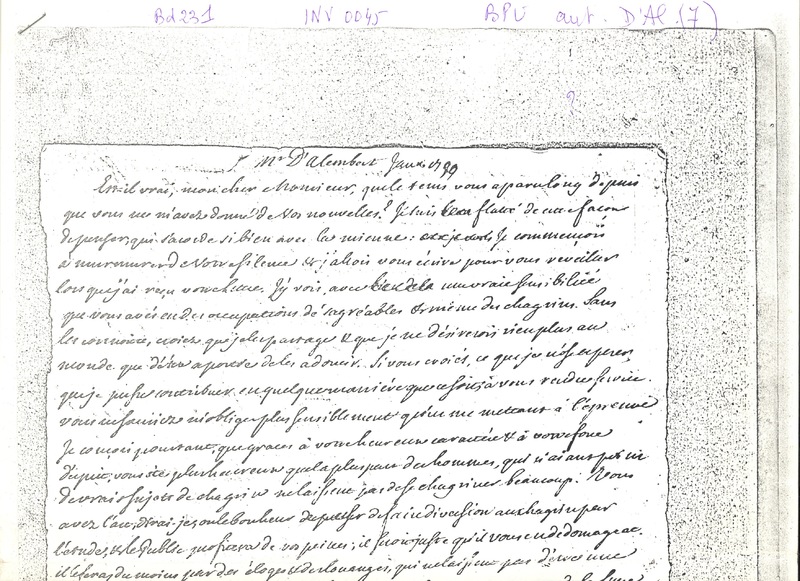 Bd 231 INV 0045 BPU aut. D'Al. (7)
?
Mr D'Alembert Janv. 1789
Est-il vrai, mon cher Monsieur, que le tems vous a paru long depuis
que vous ne m'avez donné de vos nouvelles? Je suis flatté de cette façon
de penser, qui s'acorde si bien avec la mienne: Je commençois
à murmurer de votre silence & j'allois vous écrire pour vous reveiller
lorsque j'ai reçu votre lettre. J'y vois avec une vraie sensibilité
que vous avés eu des occupations désagréables & même des chagrins. Sans
les connoitre, croiez que je les partage & que je ne désirerois rien plus au
monde que d'être a portée de les adoucir. Si vous croiez, ce que je n'ose esperer
que je puisse contribuer en quelque maniere que ce soit, à vous rendre service
vous ne sauriez m'obliger plus sensiblement qu'en me mettant à l'épreuve
Je conçois pourtant, que graces à votre heureux caractère & à votre
d'esprit, vous êtes plus heureux que la plus part des hommes, qui n'aiant
de vrais sujets de chagrin ne laissent pas de se chagriner beaucoup. Vous
avez l'art, & le bonheur de faire diversion au chagrin par
l'étude, & le Public profitera de vos peines; il seroit juste qu'il vous en dédomageat.
il le fera du moins par des éloges & des louanges, qui ne laissent pas d'être une